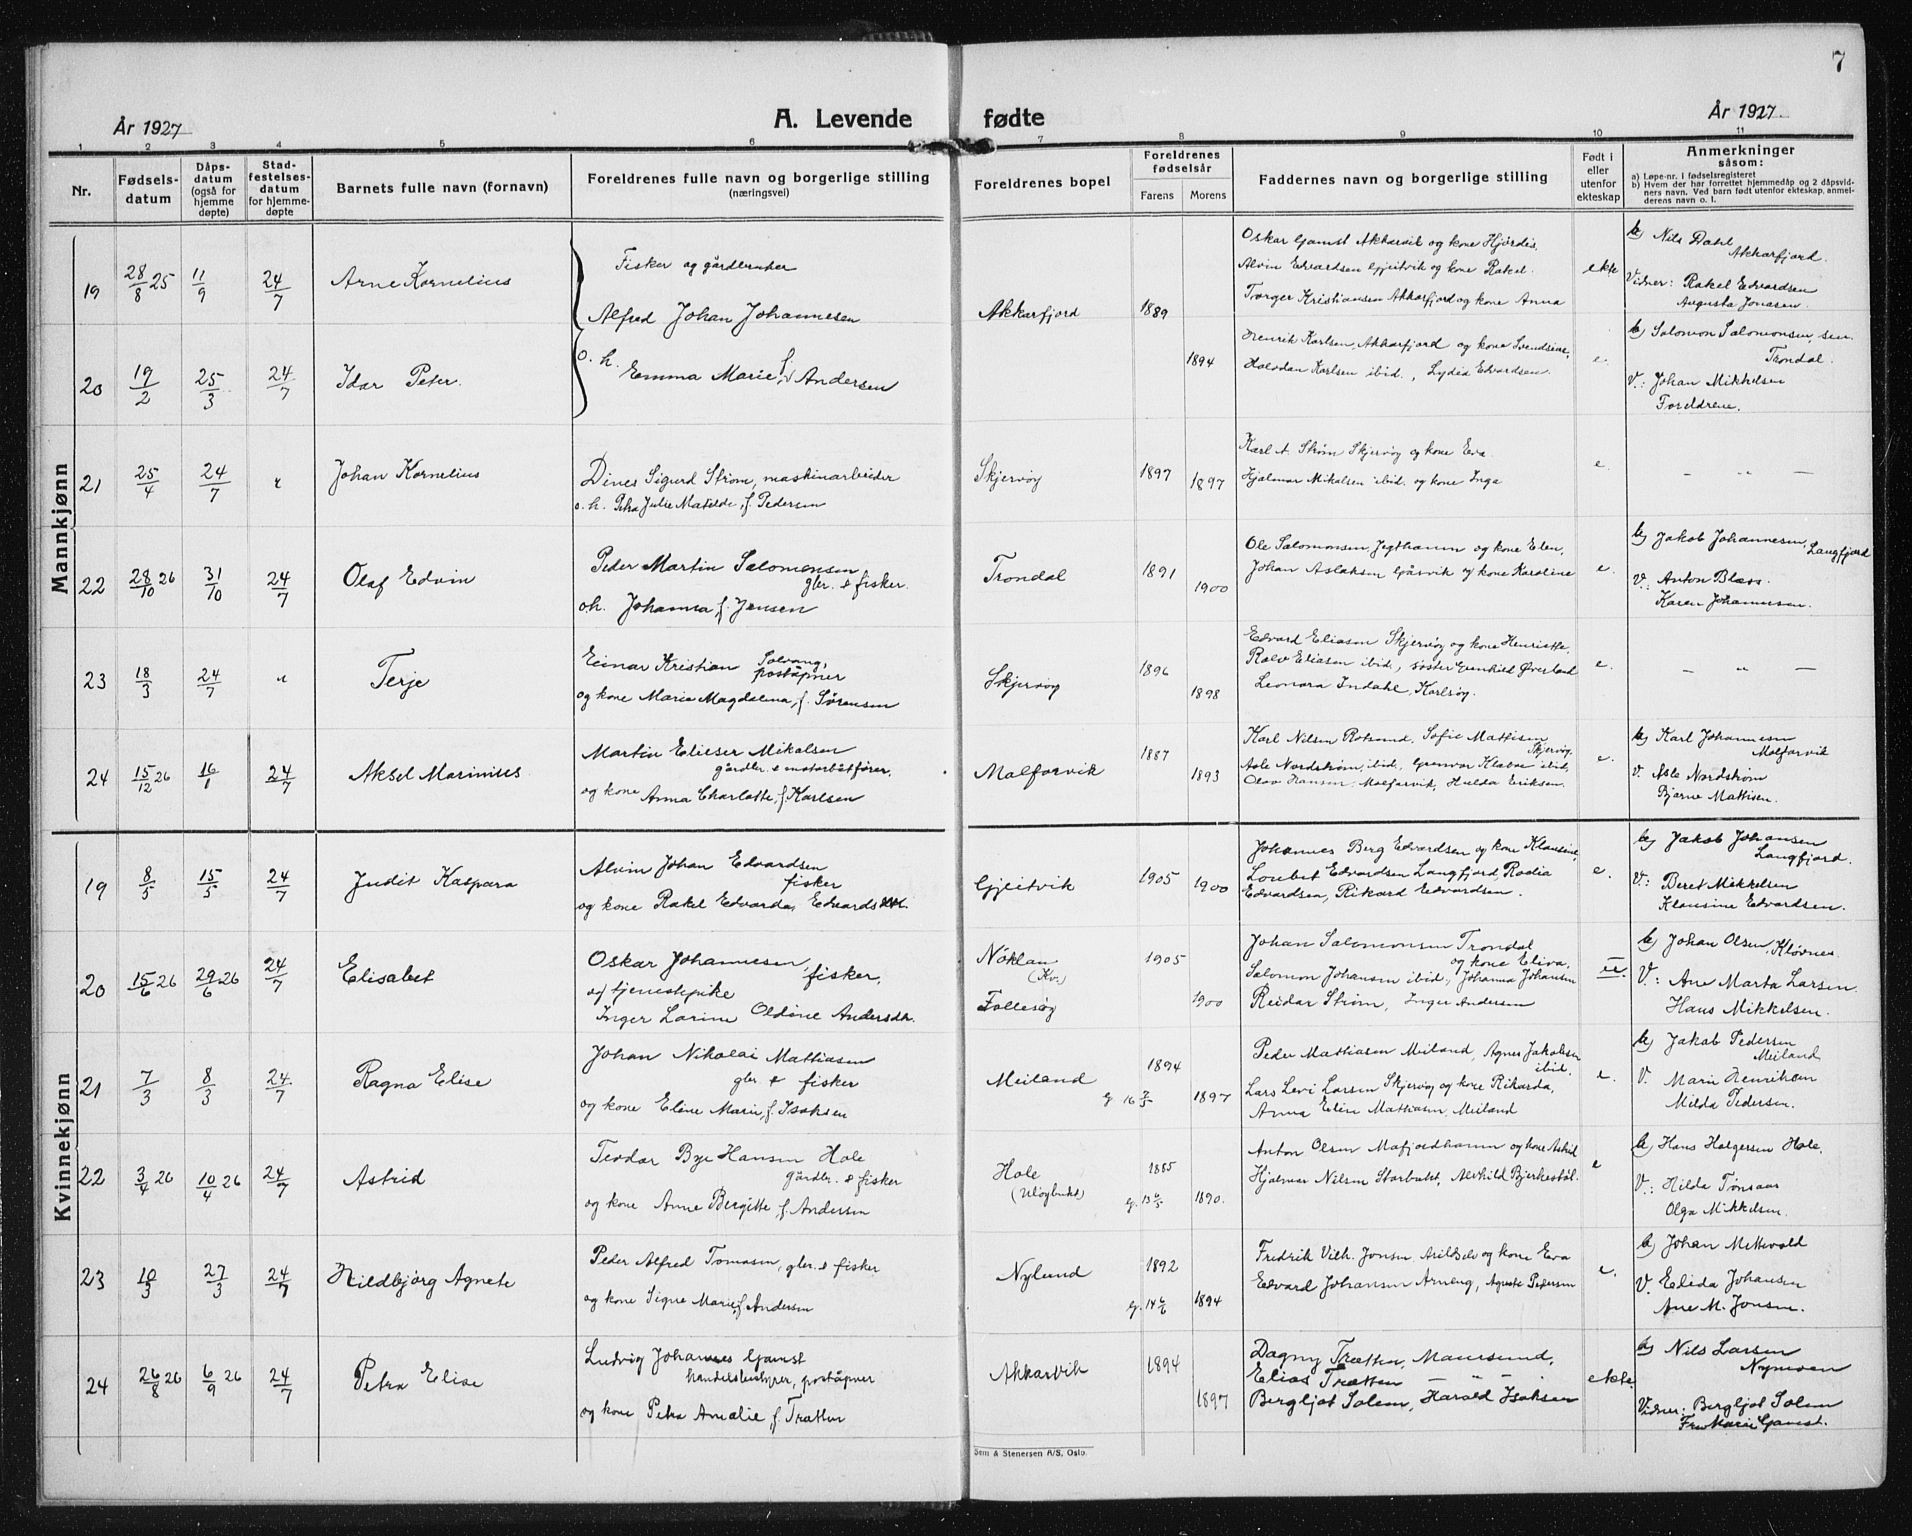 7
År 1927
A. Levende fødte
År 1927.
1 2 3 4 5 6 7 8 9 10 11
Nr.
Fødsels-
datum
Dåps-
datum
(også for
hjemme
døpte)
Stad-
festelses-
datum
for hjemme-
døpte
Barnets fulle navn (fornavn)
Foreldrenes fulle navn og borgerlige stilling
(næringsvei)
Foreldrenes bopel
Foreldrenes
fødselsår
Farens Morens
Faddernes navn og borgerlige stilling
Født i
eller
utenfor
ekteskap
Anmerkninger
såsom:
a) Løpe-nr. i fødselsregisteret
b) Hvem der har forrettet hjemmedåp og 2 dåpsvid-
ners navn. Ved barn født utenfor ekteskap, anmel-
derens navn o. l.
Mannkjønn
19 28/8 25 11/9 24/7 Arne Kornelius
Fisker og gårdbruker
Alfred Johan Johannesen
Akkarfjord 1889
Oskar Gamst Akkarvik og kone Hjørdis,
Alvin Edvardsen Gjeitvik og kone Rakel.
Torger Kristiansen Akkarfjord og kone Anna
ekte
b) Nils Dahl
Akkarfjord.
Vidner: Rakel Edvardsen
Augusta Jonasen.
20 19/2 25/3 24/7 Idar Peter.
o. h. Emma Marie, f. Andersen
1894
Henrik Karlsen, Akkarfjord og kone Svendsine,
Halvdan Karlsen ibid., Lydia Edvardsen.
e.
b) Salomon Salomonsen, sen.
Trondal.
V.: Johan Mikkelsen
Foreldrene.
21 25/4 24/7 " Johan Kornelius
Dines Sigurd Strøm, maskinarbeider
o. h. Petra Julie Matilde, f. Pedersen
Skjervøy 1897 1897
Karl A. Strøm Skjervøy og kone Eva
Hjalmar Mikalsen ibid. og kone Inga
e.
— " —
22 28/10 26 31/10 24/7 Olaf Edvin
Peder Martin Salomonsen
gbr. & fisker.
oh. Johanna f. Jensen
Trondal 1891 1900
Ole Salomonsen, Jegthamn og kone Elen,
Johan Aslaksen Gåsvik og kone Karoline
e.
b) Jakob Johannesen, Langfjord
V.: Anton Blæss.
Karen Johannesen.
23 18/3 24/7 " Terje
Einar Kristian Solvang,
poståpner
og kone Marie Magdalena, f. Sørensen
Skjervøy 1896 1898
Edvard Eliasen Skjervøy og kone Henriette,
Rolv Eliasen ibid., søster Gunhild Øverland
Leonora Indahl, Karlsøy.
e.
— " —
24 15/12 26 16/1 24/7 Aksel Marinius
Martin Elieser Mikalsen
gårdbr. & motorbåtfører,
og kone Anna Charlotte, f. Karlsen
Malfarvik 1887 1893
Karl Nilsen Rotsund, Sofie Mattisen
Skjervøy,
Asle Nordstrøm, ibid, Gunvor Klæboe ibid,
Olav Hansen, Malfarvik, Hulda Eriksen.
e.
b) Karl Johannesen
Malfarvik
V. Asle Nordstrøm
Bjarne Mattisen.
Kvinnekjønn
19 8/5 15/5 24/7 Judit Kaspara
Alvin Johan Edvardsen
fisker
og kone Rakel Edvarda, Edvards
Gjeitvik 1905 1900
Johannes Berg Edvardsen og kone Klausine,
Loubet Edvardsen Langfjord, Rodia
Edvardsen, Rikard Edvardsen.
e.
b) Jakob Johansen
Langfjord.
V.: Beret Mikkelsen
Klausine Edvardsen.
20 15/6 26 29/6 26 24/7 Elisabet
Oskar Johannesen, fisker,
og tjenestepike
Inger Larine Oldine Andersdtr.
Nøklan
(Kv.)
Follesøy
1905 1900
Johan Salomonsen Trondal
og kone Eliva,
Salomon Johansen ibid., Johanna Johansen
Reidar Strøm, Inger Andersen
ue.
b) Johan Olsen, Kløvnes
V.: Ane Marta Larsen.
Hans Mikkelsen.
21 7/3 8/3 24/7 Ragna Elise
Johan Nikolai Mattiasen
gbr. & fisker
og kone Eline Marie f. Isaksen
Meiland
g. 16 2/5
1894 1897
Peder Mattiasen Meiland, Agnes Jakobsen
ibid.
Lars Levi Larsen Skjervøy og kone Rikarda,
Anna Elise Mattiasen, Meiland
e.
b) Jakob Pedersen
Meiland
V. Marie Henriksen
Milda Pedersen.
22 3/4 26 10/4 26 24/7 Astrid
Teodor Bye Hansen Hole
gårdbr. & fisker
og kone Anne Bergitte f. Andersen
Hole
(Uløybukt)
g. 13 6/5
1885 1890.
Anton Olsen Mafjordhamn og kone Astrid
Hjalmar Nilsen Storbukt, Alvhild Bjerkestøl.
e
b) Hans Holgersen Hole.
V.: Hilda Tønsaas
Olga Mikkelsen.
23 10/3 27/3 24/7 Hildbjørg Agnete
Peder Alfred Tomasen, gbr. & fisker
og kone Signe Marie, f. Andersen
Nylund
g. 14 6/6
1892 1894
Fredrik Vilh. Jensen Arildselv og kone Eva
Edvard Johansen Arneng, Agnete Pedersen
e.
b) Johan Mettevold
V. Elida Johansen
Ane M. Jensen.
24 26/8 26 6/9 26 24/7 Petra Elise
Ludvig Johannes Gamst
handelsbestyrer, poståpner
og kone Petra Amalie f. Trætten
Akkarvik 1894 1897
Dagny Trætten, Maursund,
Elias Trætten — " —
Bergljot Solem, Harald Isaksen
ekte.
b) Nils Larsen
Nymoen
Vidner: Bergljot Solem
Fru Marie Gamst.
Sem & Stenersen A/S, Oslo.